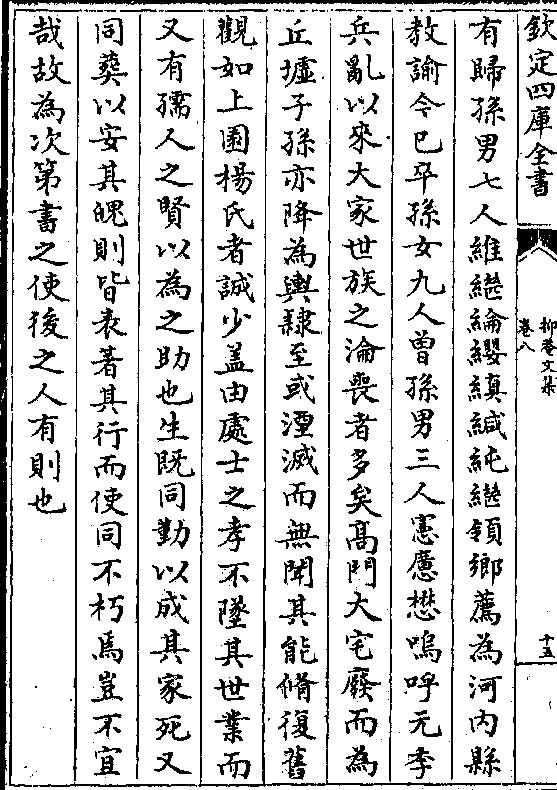 欽定四庫全書
抑菴文集
卷八
十五
有歸孫男七人維繼綸纓縝緘純繼領鄉薦為河內縣
教諭令已卒孫女九人曾孫男三人憲應懋嗚呼元季
兵亂以來大家世族之淪喪者多矣髙門大宅廢而為
丘墟子孫亦降為輿隸至或湮滅而無聞其能脩復舊
觀如上園楊氏者誠少盖由處士之孝不墜其世業而
又有孺人之賢以為之助也生既同勤以成其家死又
同葬以安其魄則皆表著其行而使同不朽焉豈不宜
哉故為次第書之使後之人有則也